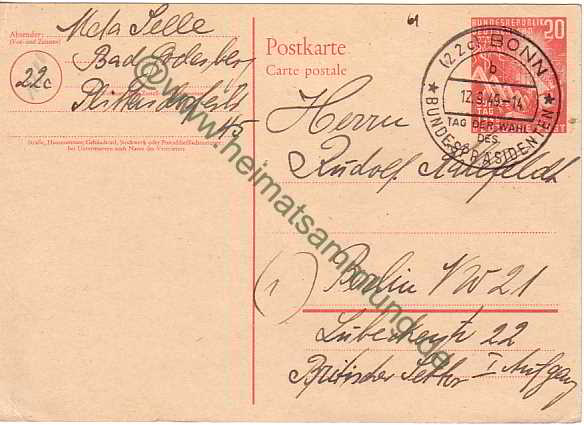 Absender:
(Vor- und Zuname)
Meta Selle
Bad Godesberg
22c
115
Straße, Hausnummer, Gebäudeteil, Stockwerk oder Postschließfachnummer;
bei Untermietern auch Name des Vermieters
Postkarte
Carte postale
BUNDESREPUBLIK
DEUTSCHLAND
20
(22c) BONN
b
12.9.49-14
TAG DER WAHL
DES
BUNDESPRÄSIDENTEN
Herrn
Rudolf
(1) Berlin NW 21
Lübeckerstr 22
Britischer Sektor I Aufgang
@www.heimatsammlung.de